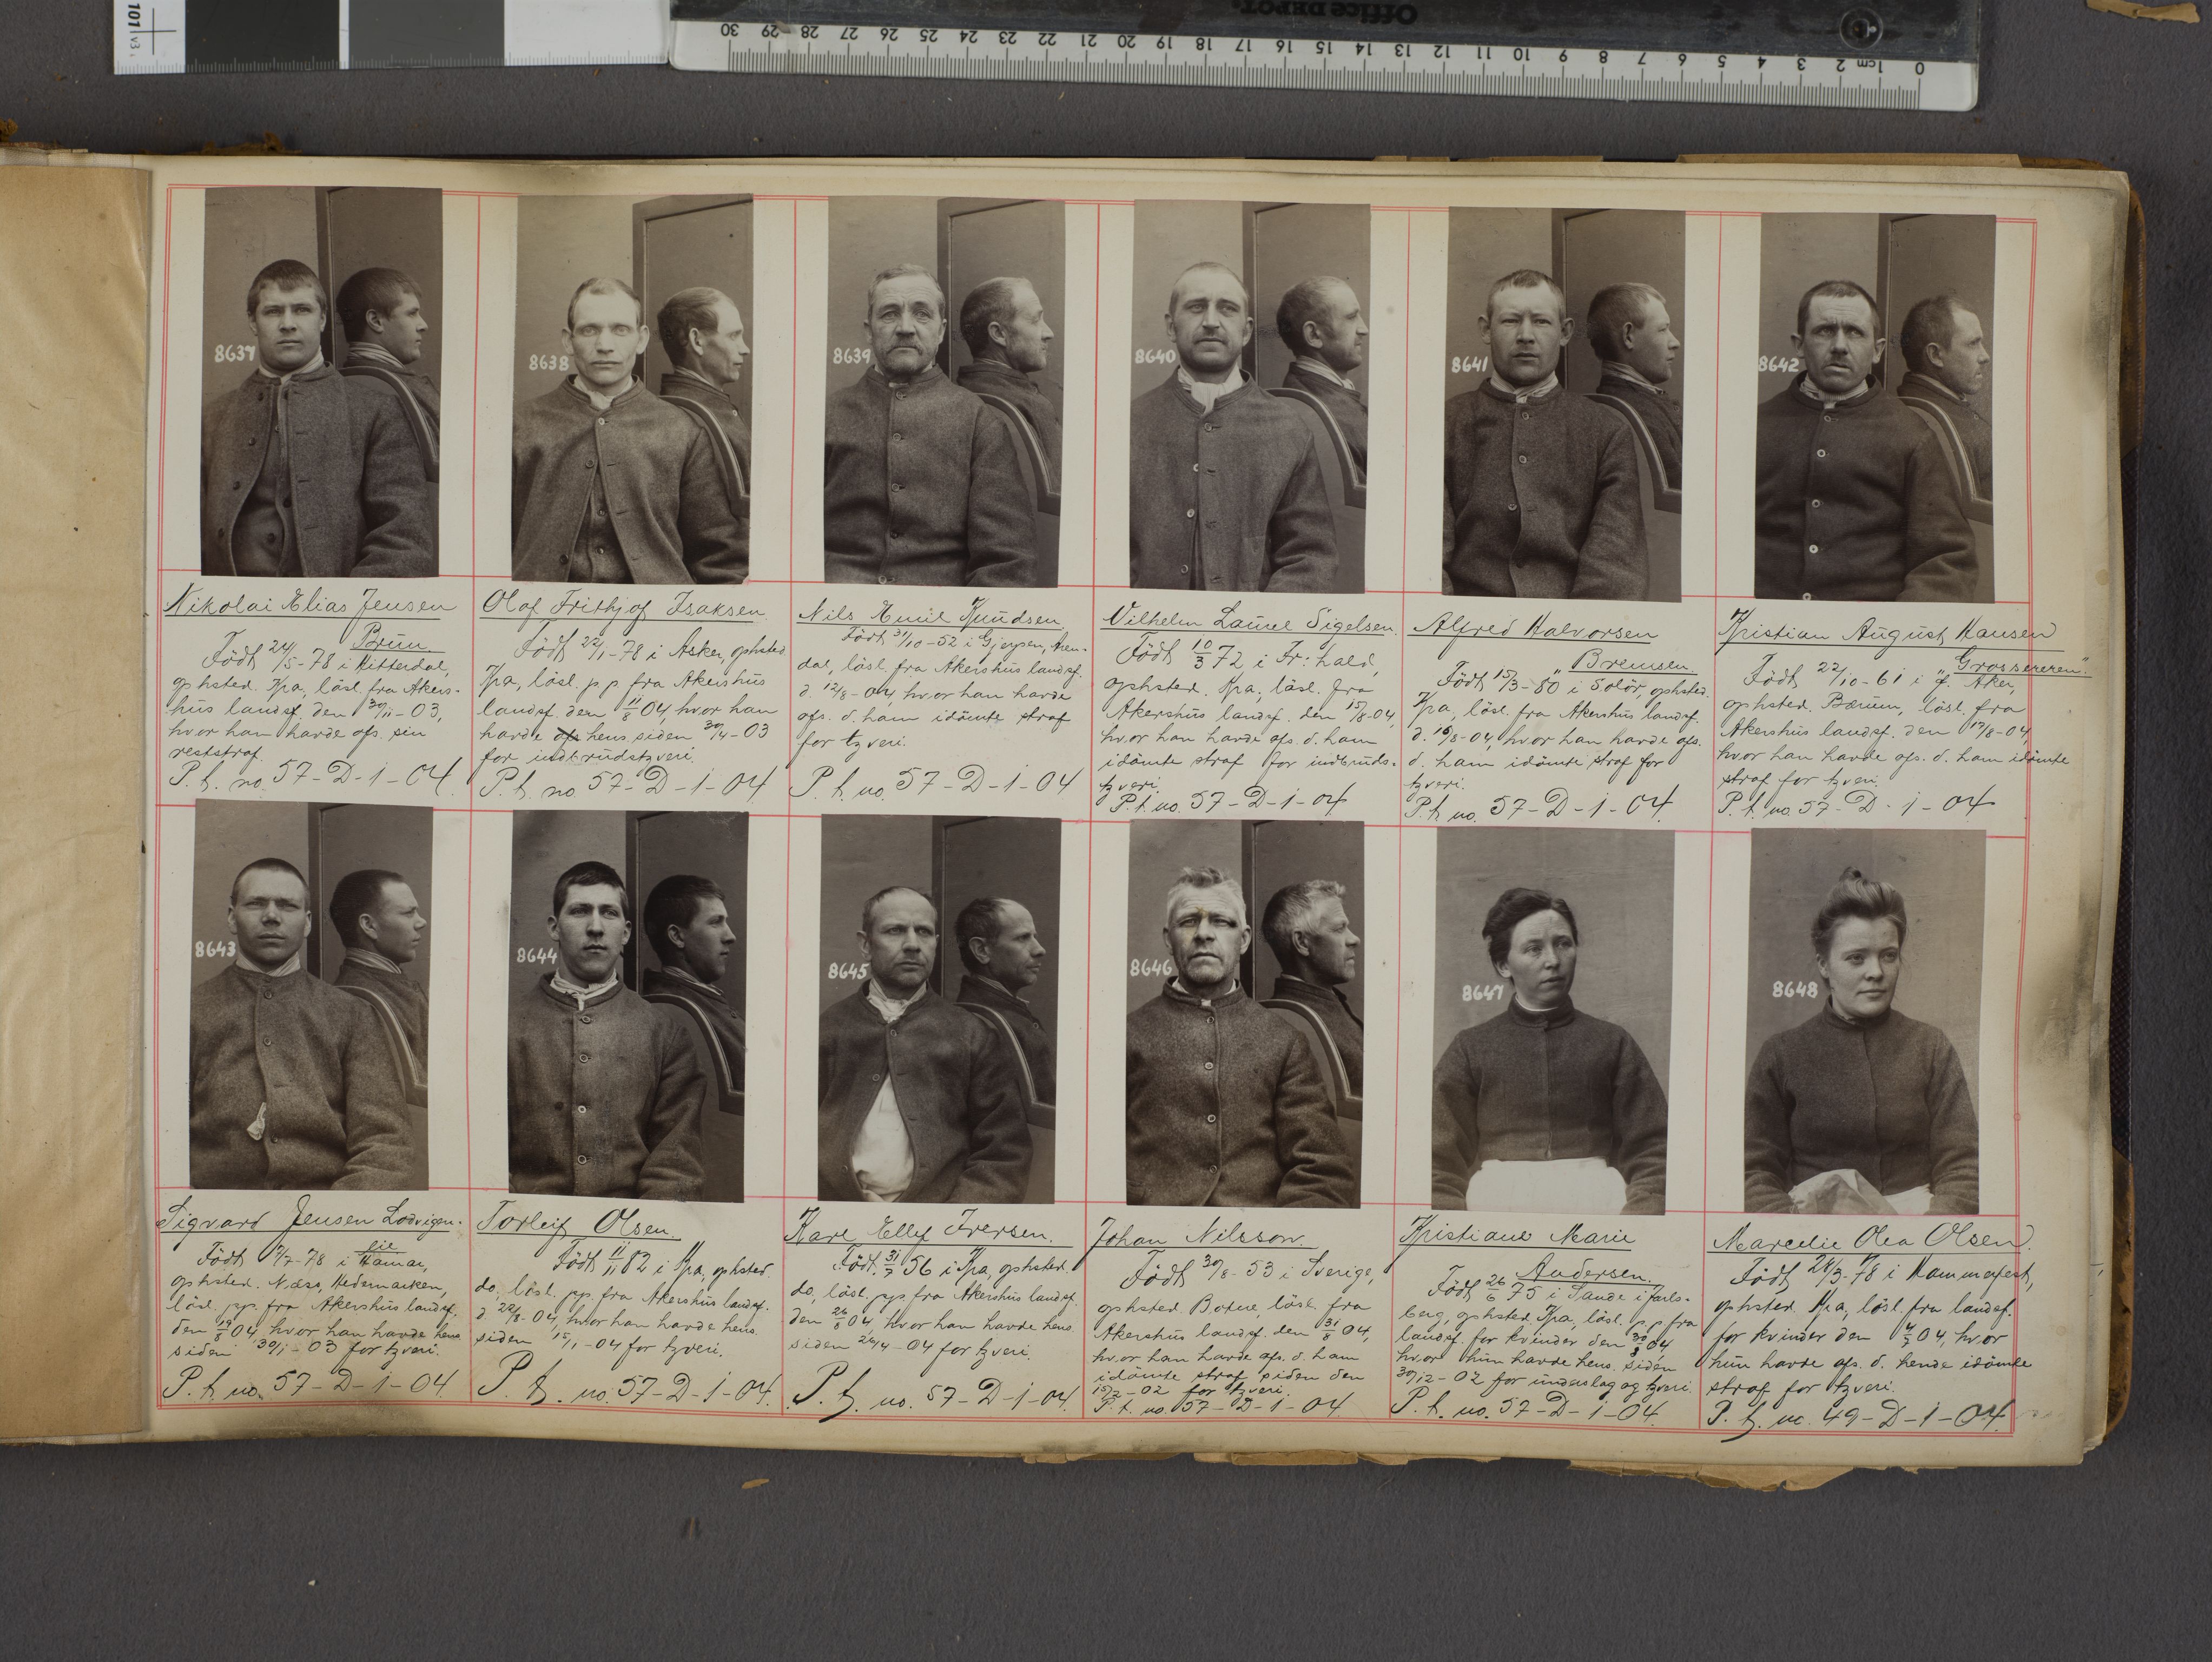 101 v3
Office DEPOT.
0 1cm 2 3 4 5 6 7 8 9 10 11 12 13 14 15 16 17 18 19 20 21 22 23 24 25 26 27 28 29 30
8637
8638
8639
8640
8641
8642
Nikolai Elias Jensen
Brun
Født 24/5-78 i Hitterdal,
ophsted. Kra, løsl. fra Akers-
hus landsf. den 30/11-03,
hvor han havde afs. sin
reststraf.
P. t. no. 57-D-1-04.
Olaf Frithjof Isaksen
Født 22/1-78 i Asker, ophsted.
Kra, løsl. p.p. fra Akershus
landsf. den 11/8 04, hvor han
havde afs hens. siden 30/4-03
for indbrudstyveri.
P. t. no 57-D-1-04
Nils Emil Knudsen
Født 31/10-52 i Gjerpen, Aren-
dal, løsl. fra Akershus landsf.
d. 12/8-04, hvor han havde
afs. d. ham idømte straf
for tyveri.
P. t. no. 57-D-1-04
Vilhelm Laurel Sigelsen.
Født 10/3 72 i Fr:hald,
ophsted. Kra, løsl. fra
Akershus landsf. den 15/8-04,
hvor han havde afs. d. ham
idømte straf for indbruds-
tyveri.
P. t. no. 57-D-1-04
Alfred Halvorsen
"Bremsen.
Født 15/3-80 i Solør, ophsted.
Kra, løsl. fra Akershus landsf.
d. 16/8-04, hvor han havde afs.
d. ham idømte straf for
tyveri.
P. t. no. 57-D-1-04.
Kristian August Hansen
"Grossereren".
Født 22/10-61 i V. Aker,
ophsted. Bærum, løsl. fra
Akershus landsf. den 17/8-04,
hvor han havde afs. d. ham idømte
straf for tyveri.
P. t. no. 57-D-1-04
8643
8644
8645
8646
8647
8648
Sigvard Jensen Lodvigen.
lie
Født 7/7-78 i Hamar,
ophsted. Næs, Hedemarken,
løsl. pp. fra Akershus landsf.
den 19/8 04, hvor han havde hens.
siden 30/1-03 for tyveri.
P. t. no. 57-D-1-04.
Torleif Olsen.
Født 11/11 82 i Kra, ophsted.
do, løsl. pp. fra Akershus landsf.
d. 22/8-04, hvor han havde hens.
siden 15/1-04 for tyveri.
P. t. no. 57-D-1-04.
Karl Ellef Iversen.
Født. 31/7 56 i Kra, ophsted.
do, løsl. pp. fra Akershus landsf.
den 26/8 04, hvor han havde hens.
siden 26/4-04 for tyveri.
P. t. no. 57-D-1-04.
Johan Nilsson.
Født 30/8-53 i Sverige,
ophsted. løsl. fra
Akershus landsf. den 31/8 04,
hvor han havde afs. d. ham
idømte straf siden den
-02 for tyveri.
P. t. no. 57-D-1-04.
Kristiane Marie
Andersen.
Født 26/6 75 i Sande i Jarls-
berg, ophsted. Kra, løsl. p.p fra
landsf. for kvinder den 30/8 04
hvor hun havde hens. siden
30/12-02 for underslag og tyveri.
P. t. no. 57-D-1-04.
Marcelie Olea Olsen.
Født 28/3-78 i Hammerfest,
ophsted. Kra, løsl. fra landsf.
for kvinder den 4/7 04, hvor
hun havde afs. d. hende idømte
straf for tyveri.
P. t. no. 49-D-1-04.